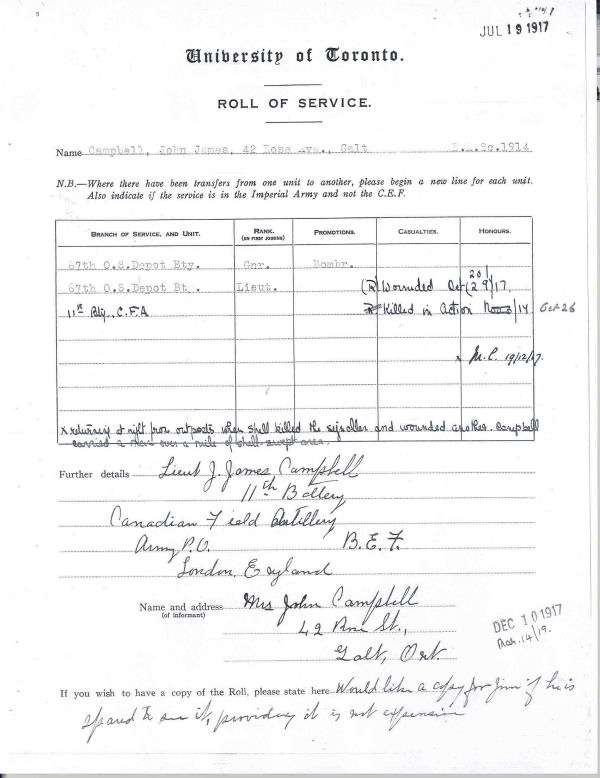 JUL 19 1917
University of Toronto.
ROLL OF SERVICE.
Name Campbell, John James, 42 Ross Ave., Galt B.A.Sc.1914
N.B.—Where there have been transfers from one unit to another, please begin a new line for each unit.
Also indicate if the service is in the Imperial Army and not the C.E.F.
BRANCH OF SERVICE, AND UNIT. RANK. (ON FIRST JOINING) PROMOTIONS. CASUALTIES. HONOURS.
67th O.S.Depot Bty. Gnr. Bombr.
20
67th O.S.Depot Bt . Lieut. (R) Wounded Oct (29)/17
11th Bty., C.F.A Killed in Action /17 Oct 26
x M.C. 19/12/17.
x returning at night from outposts when shell killed the signaller and wounded another. Campbell
carried a man over a mile of shell-swept area.
Further details Lieut J. James Campbell
11th Battery
Canadian Field Artillery
Army P.O. B.E.F.
London, England
Name and address Mrs John Campbell
(of informant)
42 Ross St.,
Galt, Ont.
DEC 10 1917
Mar. 14/19.
If you wish to have a copy of the Roll, please state here Would like a copy for Jim if he is
spared to see it, providing it is not expensive